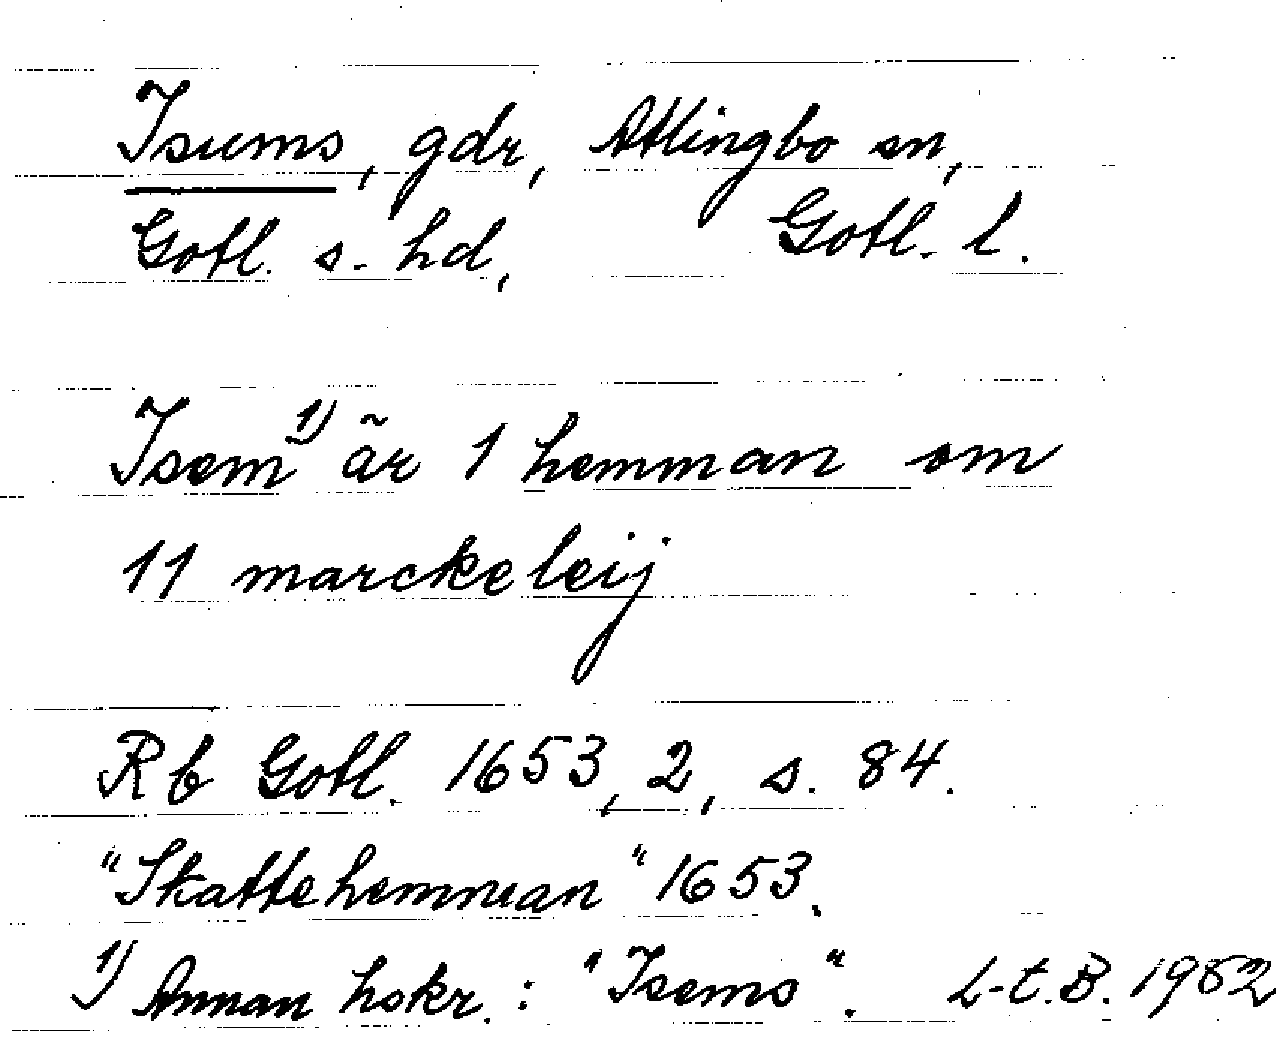 Isums, gdr, Atlingbo sn,
Gotl. s. hd, Gotl. l.
Isem¹⁾ är 1 hemman om
11 marckeleij
Rb Gotl. 1653, 2, s. 84.
"Skattehemman" 1653.
¹⁾ Annan hskr.: "Isems". L-t.B. 1982